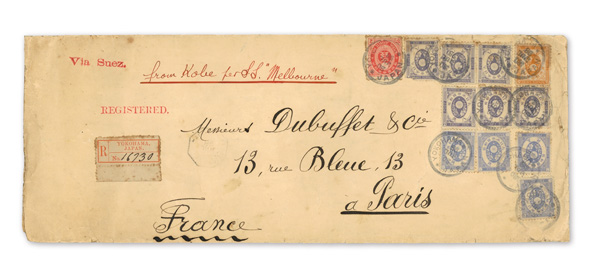 Via Suez.
from Kobe per S.S. "Melbourne"
REGISTERED.
R
YOKOHAMA,
JAPAN.
No. 16930
Messieurs Dubuffet & Cie
13, rue Bleue, 13
à Paris
France